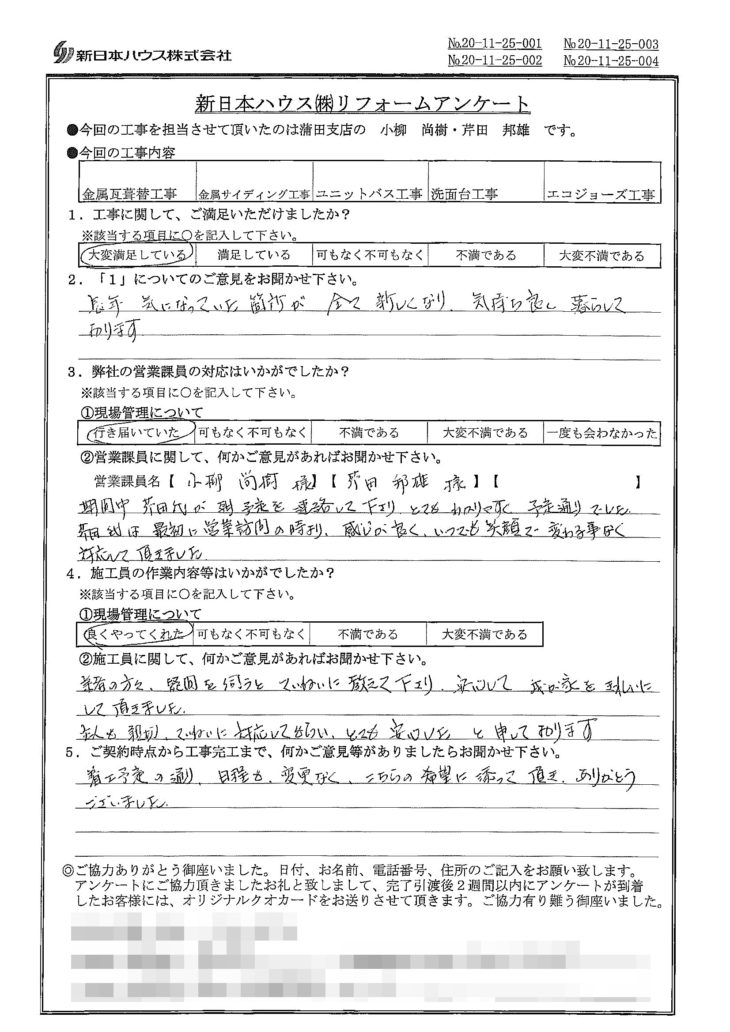 新日本ハウス株式会社
№20-11-25-001 №20-11-25-003
№20-11-25-002 №20-11-25-004
新日本ハウス㈱リフォームアンケート
●今回の工事を担当させて頂いたのは蒲田支店の 小柳 尚樹・芹田 邦雄 です。
●今回の工事内容
金属瓦葺替工事 金属サイディング工事 ユニットバス工事 洗面台工事 エコジョーズ工事
1．工事に関して、ご満足いただけましたか？
※該当する項目に〇を記入して下さい。
大変満足している 満足している 可もなく不可もなく 不満である 大変不満である
2．「1」についてのご意見をお聞かせ下さい。
長年 気になっていた箇所が 全て 新しくなり、気持ち良く 暮らして
おります
3．弊社の営業課員の対応はいかがでしたか？
※該当する項目に〇を記入して下さい。
①現場管理について
行き届いていた 可もなく不可もなく 不満である 大変不満である 一度も会わなかった
②営業課員に関して、何かご意見があればお聞かせ下さい。
営業課員名【 小柳 尚樹 様】【 芹田 邦雄 様 】【 】
期間中 芹田氏が 予定を 連絡して下さり、とても わかりやすく 予定通りでした
芹田氏は 最初に営業訪問の時より、感じが良く、いつでも 笑顔で 変わる事なく
対応して 頂きました
4．施工員の作業内容等はいかがでしたか？
※該当する項目に〇を記入して下さい。
①現場管理について
良くやってくれた 可もなく不可もなく 不満である 大変不満である
②施工員に関して、何かご意見があればお聞かせ下さい。
業者の方々、疑問を伺うと ていねいに 教えて下さり、安心して 我が家を きれいに
して 頂きました。
も 親切、ていねいに 対応してもらい、とても 安心した と申しております
5．ご契約時点から工事完工まで、何かご意見等がありましたらお聞かせ下さい。
着工予定の通り、日程も、変更なく、こちらの希望に添って 頂き、ありがとう
ございました
◎ご協力ありがとう御座いました。日付、お名前、電話番号、住所のご記入をお願い致します。
アンケートにご協力頂きましたお礼と致しまして、完了引渡後２週間以内にアンケートが到着
したお客様には、オリジナルクオカードをお送りさせて頂きます。ご協力有り難う御座いました。